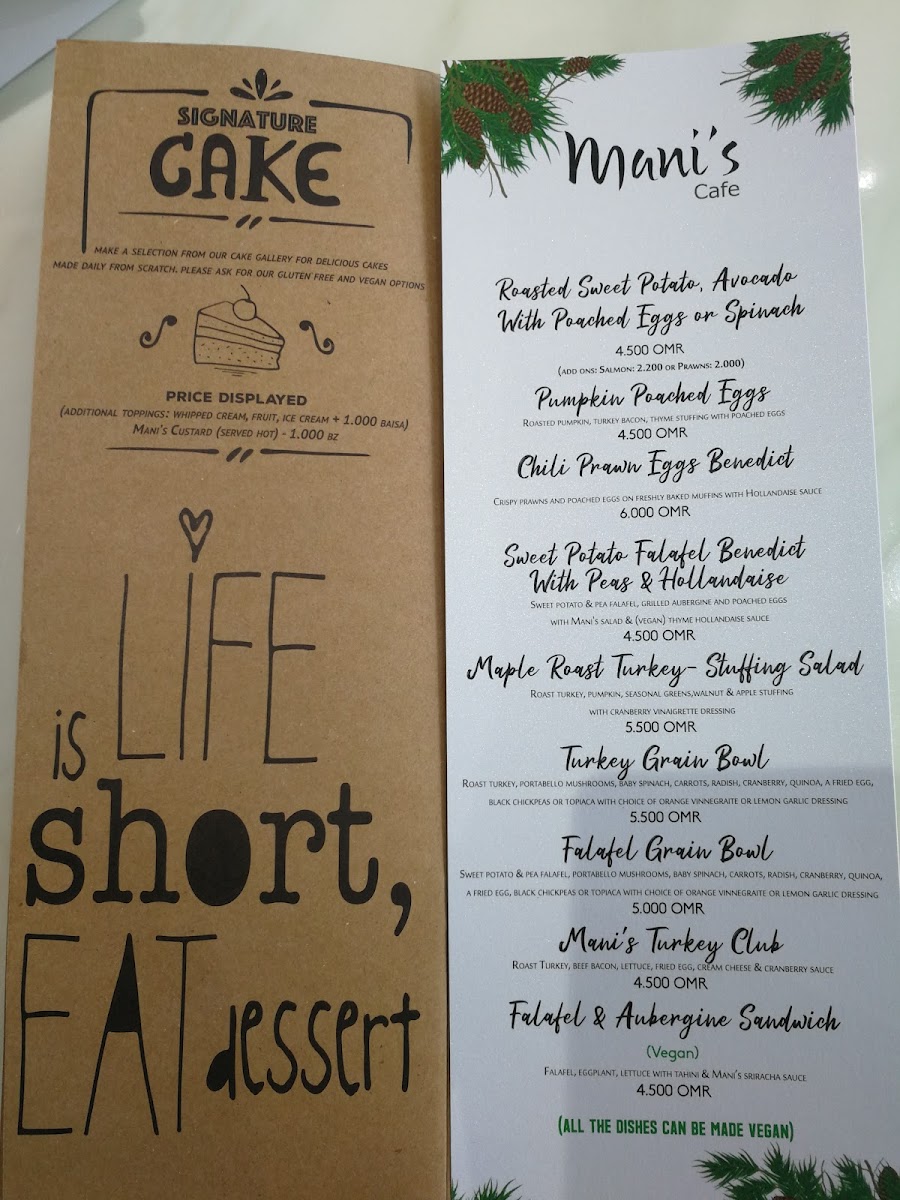 SIGNATURE
CAKE
MAKE A SELECTION FROM OUR CAKE GALLERY FOR DELICIOUS CAKES
MADE DAILY FROM SCRATCH. PLEASE ASK FOR OUR GLUTEN FREE AND VEGAN OPTIONS
PRICE DISPLAYED
(ADDITIONAL TOPPINGS: WHIPPED CREAM, FRUIT, ICE CREAM + 1.000 BAISA)
MANI'S CUSTARD (SERVED HOT) - 1.000 BZ
LIFE
is
short,
EAT dessert
Mani's
Cafe
Roasted Sweet Potato, Avocado
With Poached Eggs or Spinach
4.500 OMR
(ADD ONS: SALMON: 2.200 OR PRAWNS: 2.000)
Pumpkin Poached Eggs
ROASTED PUMPKIN, TURKEY BACON, THYME STUFFING WITH POACHED EGGS
4.500 OMR
Chili Prawn Eggs Benedict
CRISPY PRAWNS AND POACHED EGGS ON FRESHLY BAKED MUFFINS WITH HOLLANDAISE SAUCE
6.000 OMR
Sweet Potato Falafel Benedict
With Peas & Hollandaise
SWEET POTATO & PEA FALAFEL, GRILLED AUBERGINE AND POACHED EGGS
WITH MANI'S SALAD & (VEGAN) THYME HOLLANDAISE SAUCE
4.500 OMR
Maple Roast Turkey- Stuffing Salad
ROAST TURKEY, PUMPKIN, SEASONAL GREENS,WALNUT & APPLE STUFFING
WITH CRANBERRY VINAIGRETTE DRESSING
5.500 OMR
Turkey Grain Bowl
ROAST TURKEY, PORTABELLO MUSHROOMS, BABY SPINACH, CARROTS, RADISH, CRANBERRY, QUINOA, A FRIED EGG,
BLACK CHICKPEAS OR TOPIACA WITH CHOICE OF ORANGE VINNEGRAITE OR LEMON GARLIC DRESSING
5.500 OMR
Falafel Grain Bowl
SWEET POTATO & PEA FALAFEL, PORTABELLO MUSHROOMS, BABY SPINACH, CARROTS, RADISH, CRANBERRY, QUINOA,
A FRIED EGG, BLACK CHICKPEAS OR TOPIACA WITH CHOICE OF ORANGE VINNEGRAITE OR LEMON GARLIC DRESSING
5.000 OMR
Mani's Turkey Club
ROAST TURKEY, BEEF BACON, LETTUCE, FRIED EGG, CREAM CHEESE & CRANBERRY SAUCE
4.500 OMR
Falafel & Aubergine Sandwich
(Vegan)
FALAFEL, EGGPLANT, LETTUCE WITH TAHINI & MANI'S SRIRACHA SAUCE
4.500 OMR
(ALL THE DISHES CAN BE MADE VEGAN)